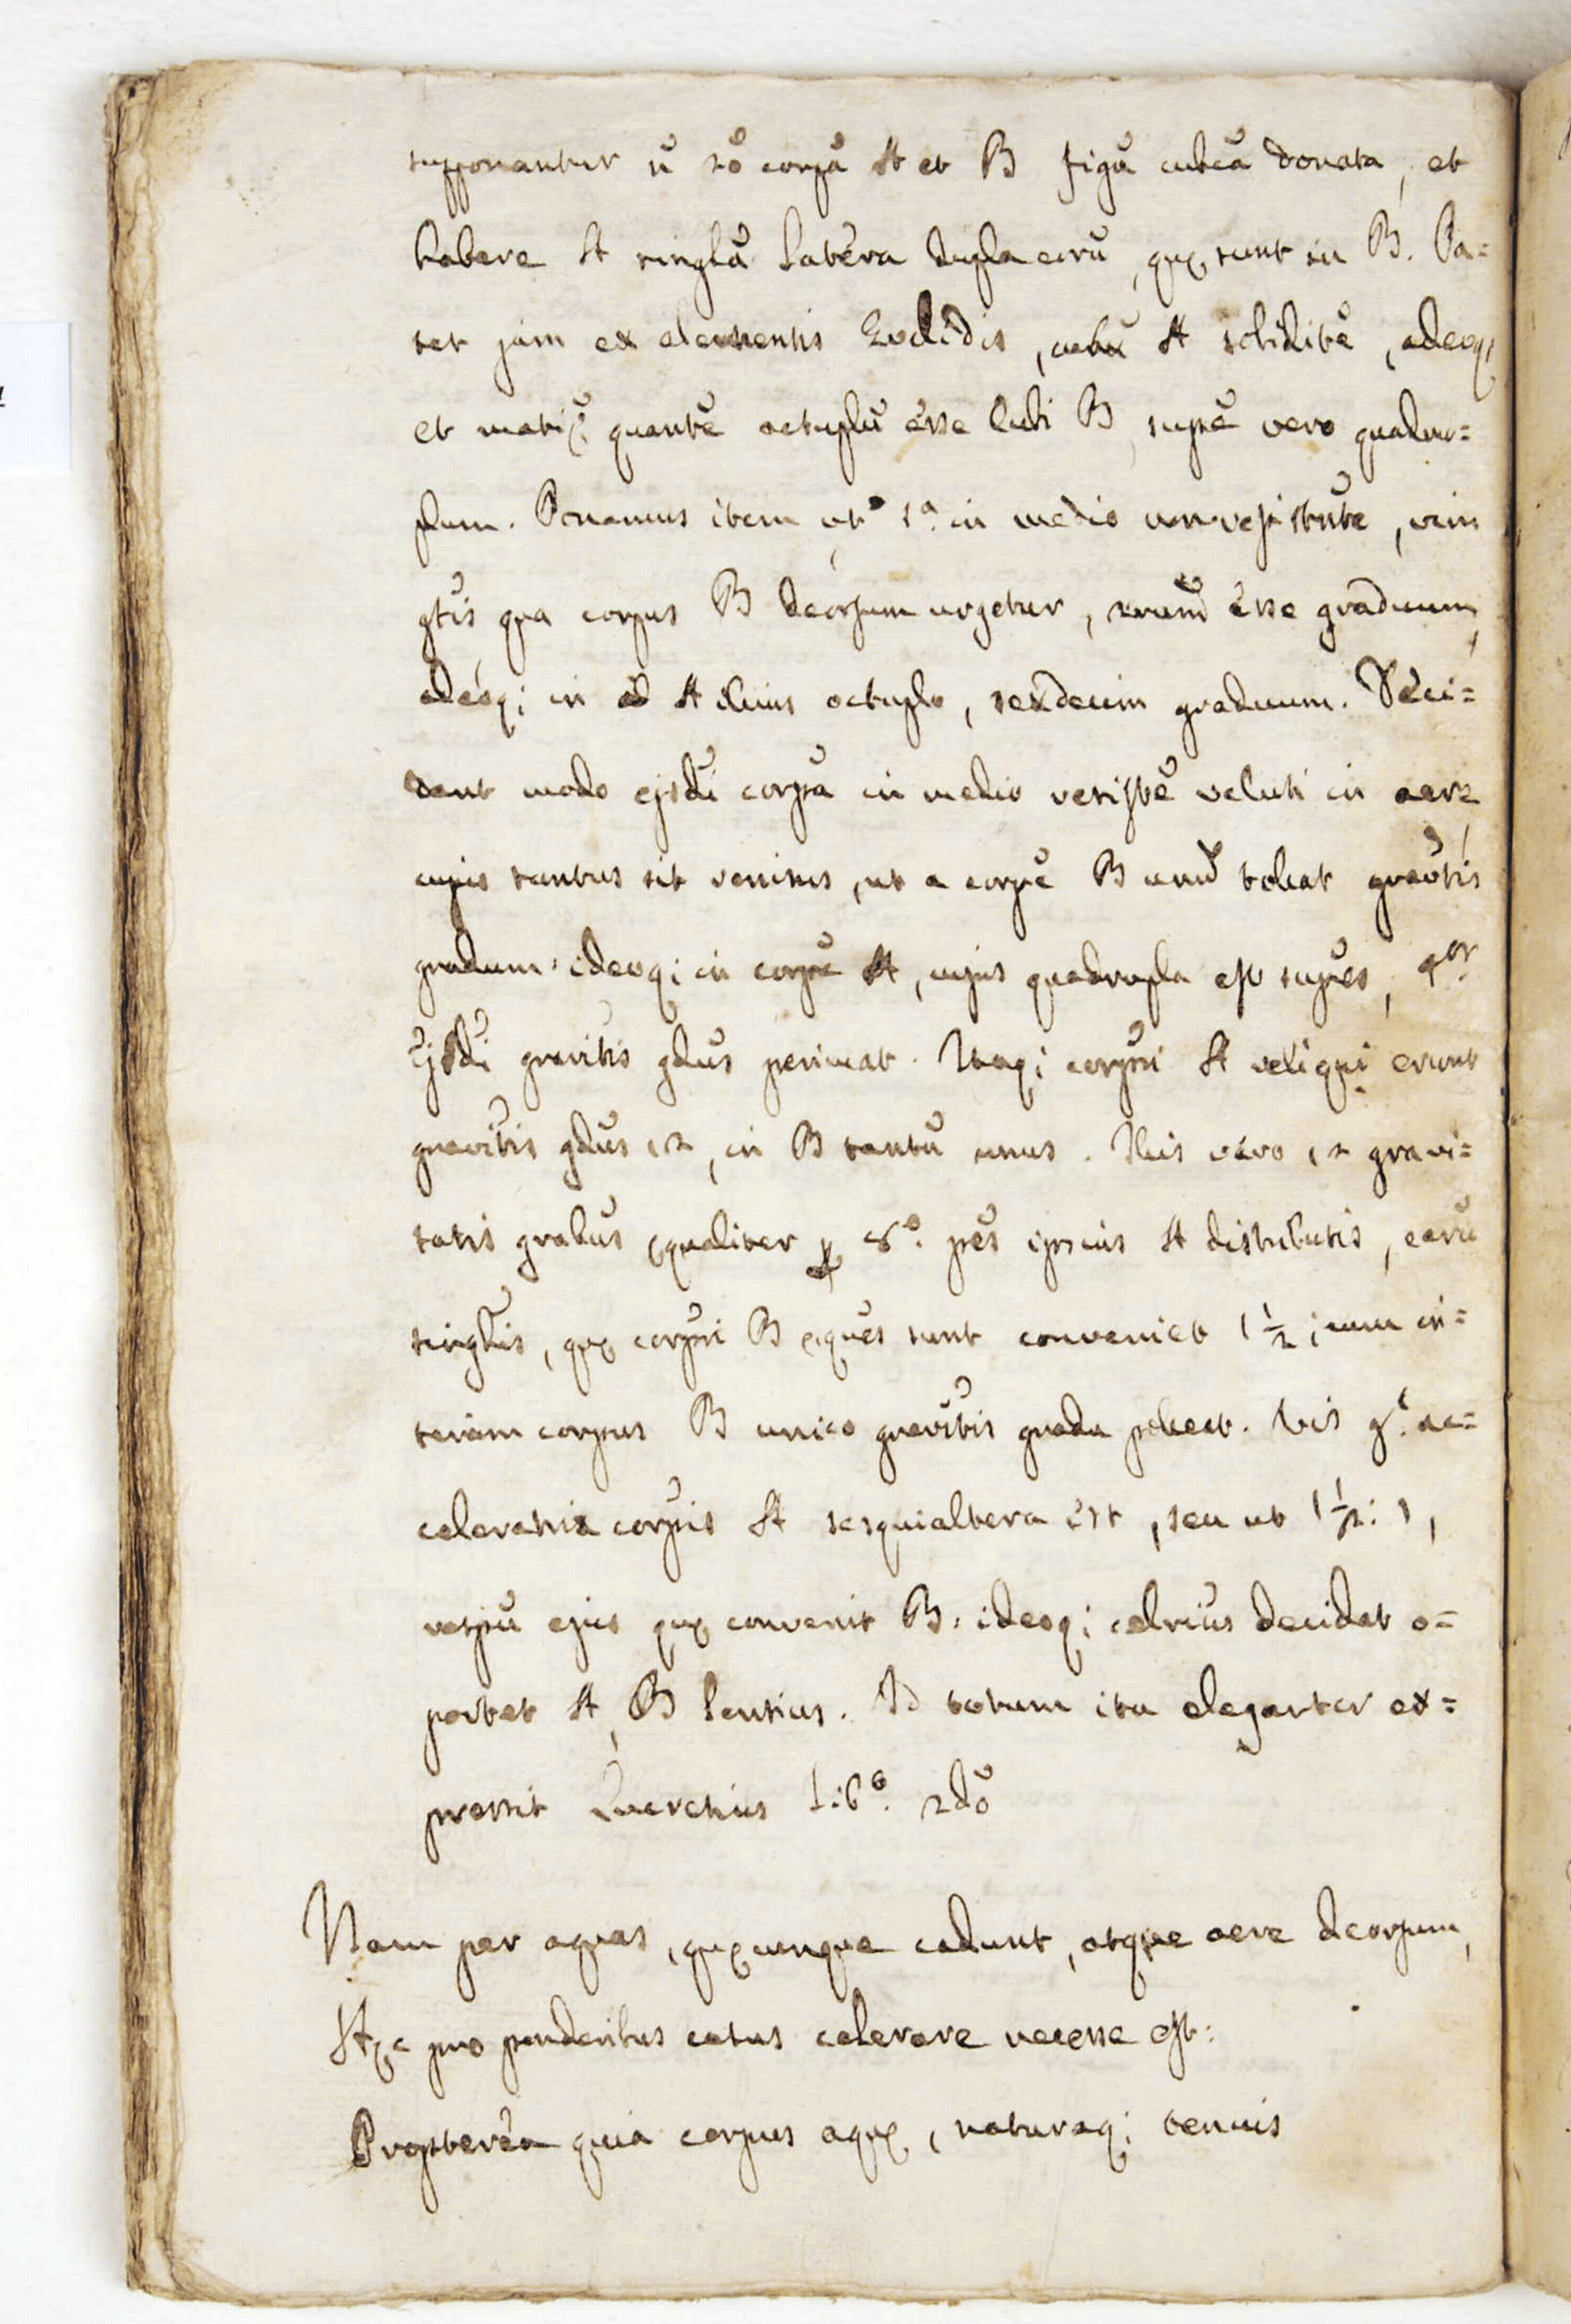 supponantur ũ 2õ corpã A et B figũ cubcã donata, et
habere A singlã latera dupla eorũ, quę sunt in B. Pa=
tet jam ex elementis Euclidis, cubũ A soliditẽ, adeoq;
et matię̃ quantẽ octuplũ esse cubi B, supẽ vero quadru=
plum. Ponamus item ut 1ᵒ in medio non resistnte, vim
gtis qua corpus B deorsum urgetur, esse graduum
adeoq; in A illius octuplo, sexdecim graduum. Deci=
dant modo ejsdĩ corpã in medio resistẽ veluti in aere
cujus tantus sit renisus, ut a corpẽ B unũ tollat gravtis
gradum: ideoq; in corpẽ A, cujus quadrupla est supẽs, 4ᵒʳ
ejsdĩ gravitis gdus perimat. Itaq; corpri A reliqui erunt
gravitis gdus 12, in B tantũ unus. Illis vero 12 gravi=
tatis grabus ęqualiter p 8ᵒ. ptes ipsius A distributis, earũ
singlis, quę corpri B ęques sunt conveniet 1 1/2; cum in=
terim corpus B unico gravitis gradu polleat. Vis gᵗ. ac=
celeratrix corpris A sesquialtera est, seu ut 1 1/2: 1,
respũ ejus quę convenit B: ideoq; celrius decidat o=
portet A, B lentius. Id totum ita eleganter ex=
pressit Lucretius Libᵒ. 2dõ
Nam per aquas, quęcunque cadunt, atque aere deorsum,
Hęc pro ponderibus casus celerare necesse est:
Propterea quia corpus aquę, naturaq; tenuis